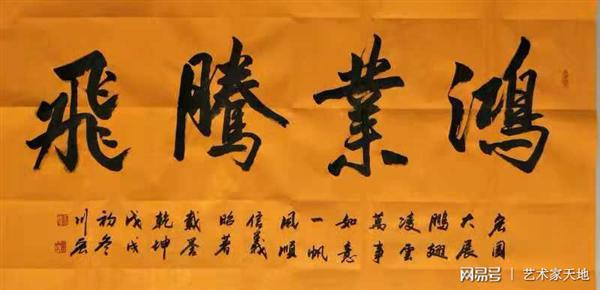 鴻業騰飛
宏圖
大展
鵬翅
凌雲
萬事
如意
一帆
風順
信義
昭著
載誉
乾坤
戊戌
初冬
川宏
网易号 | 艺术家天地